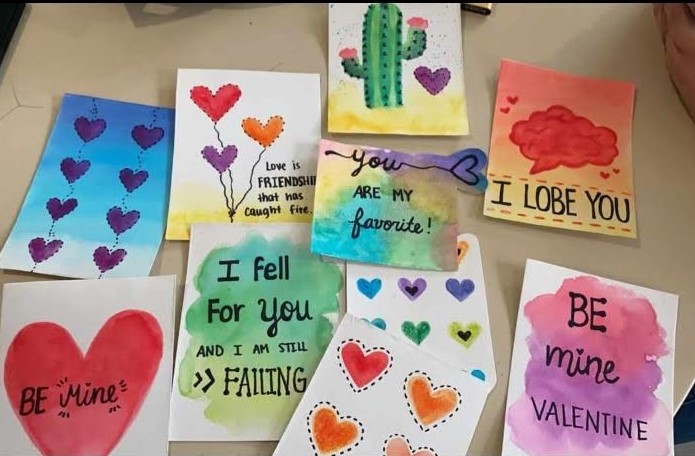 Love is
FRIENDSHIP
that has
caught fire.
you
ARE MY
favorite!
I LOBE YOU
BE Mine
I fell
For you
AND I AM STILL
>> FALLING
BE
mine
VALENTINE